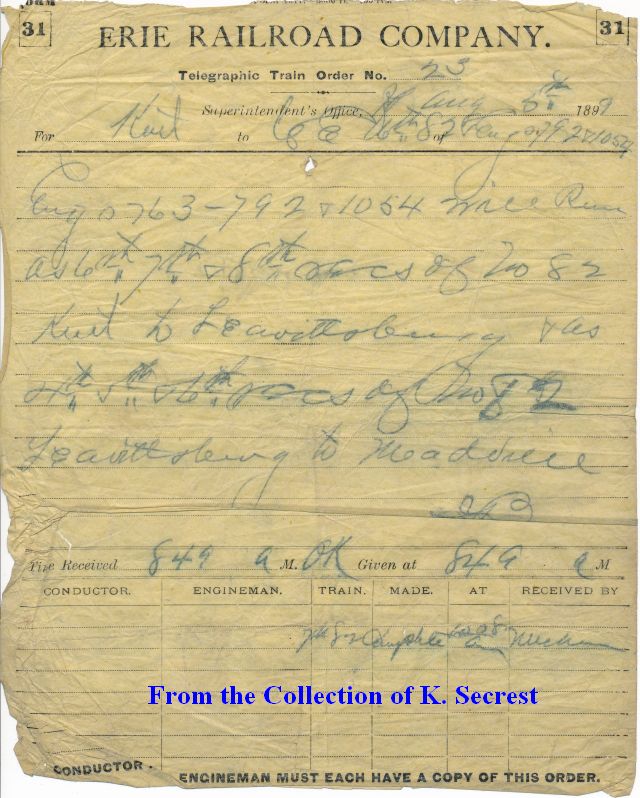 31 31
ERIE RAILROAD COMPANY.
Telegraphic Train Order No. 23
Superintendent's Office, Aug 5th 1899
For Kent to C&E 6th 82 of Eng 792 & 1054
Engs 763-792 & 1054 will Run
as 6th 7th & 8th secs of No 82
Kent to Leavittsburg & as
4th 5th & 6th secs of No 82
Leavittsburg to Meadville
Time Received 849 a M. OK Given at 849 a M
CONDUCTOR. ENGINEMAN. TRAIN. MADE. AT RECEIVED BY
7th 82 Complete
From the Collection of K. Secrest
CONDUCTOR.
ENGINEMAN MUST EACH HAVE A COPY OF THIS ORDER.